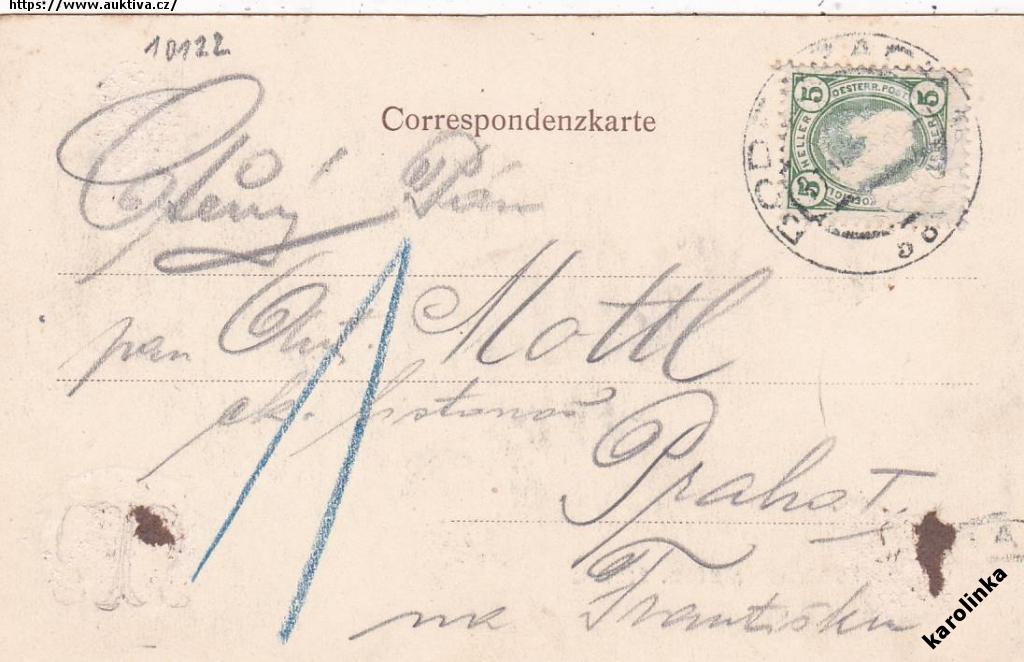 https://www.auktiva.cz/
10122
Correspondenzkarte
Ctěný Pán
5 OESTERR. POST 5
HELLER HELLER
5
pan Ant. Mottl
ck. listonoš
Praha I.
na Františku
karolinka